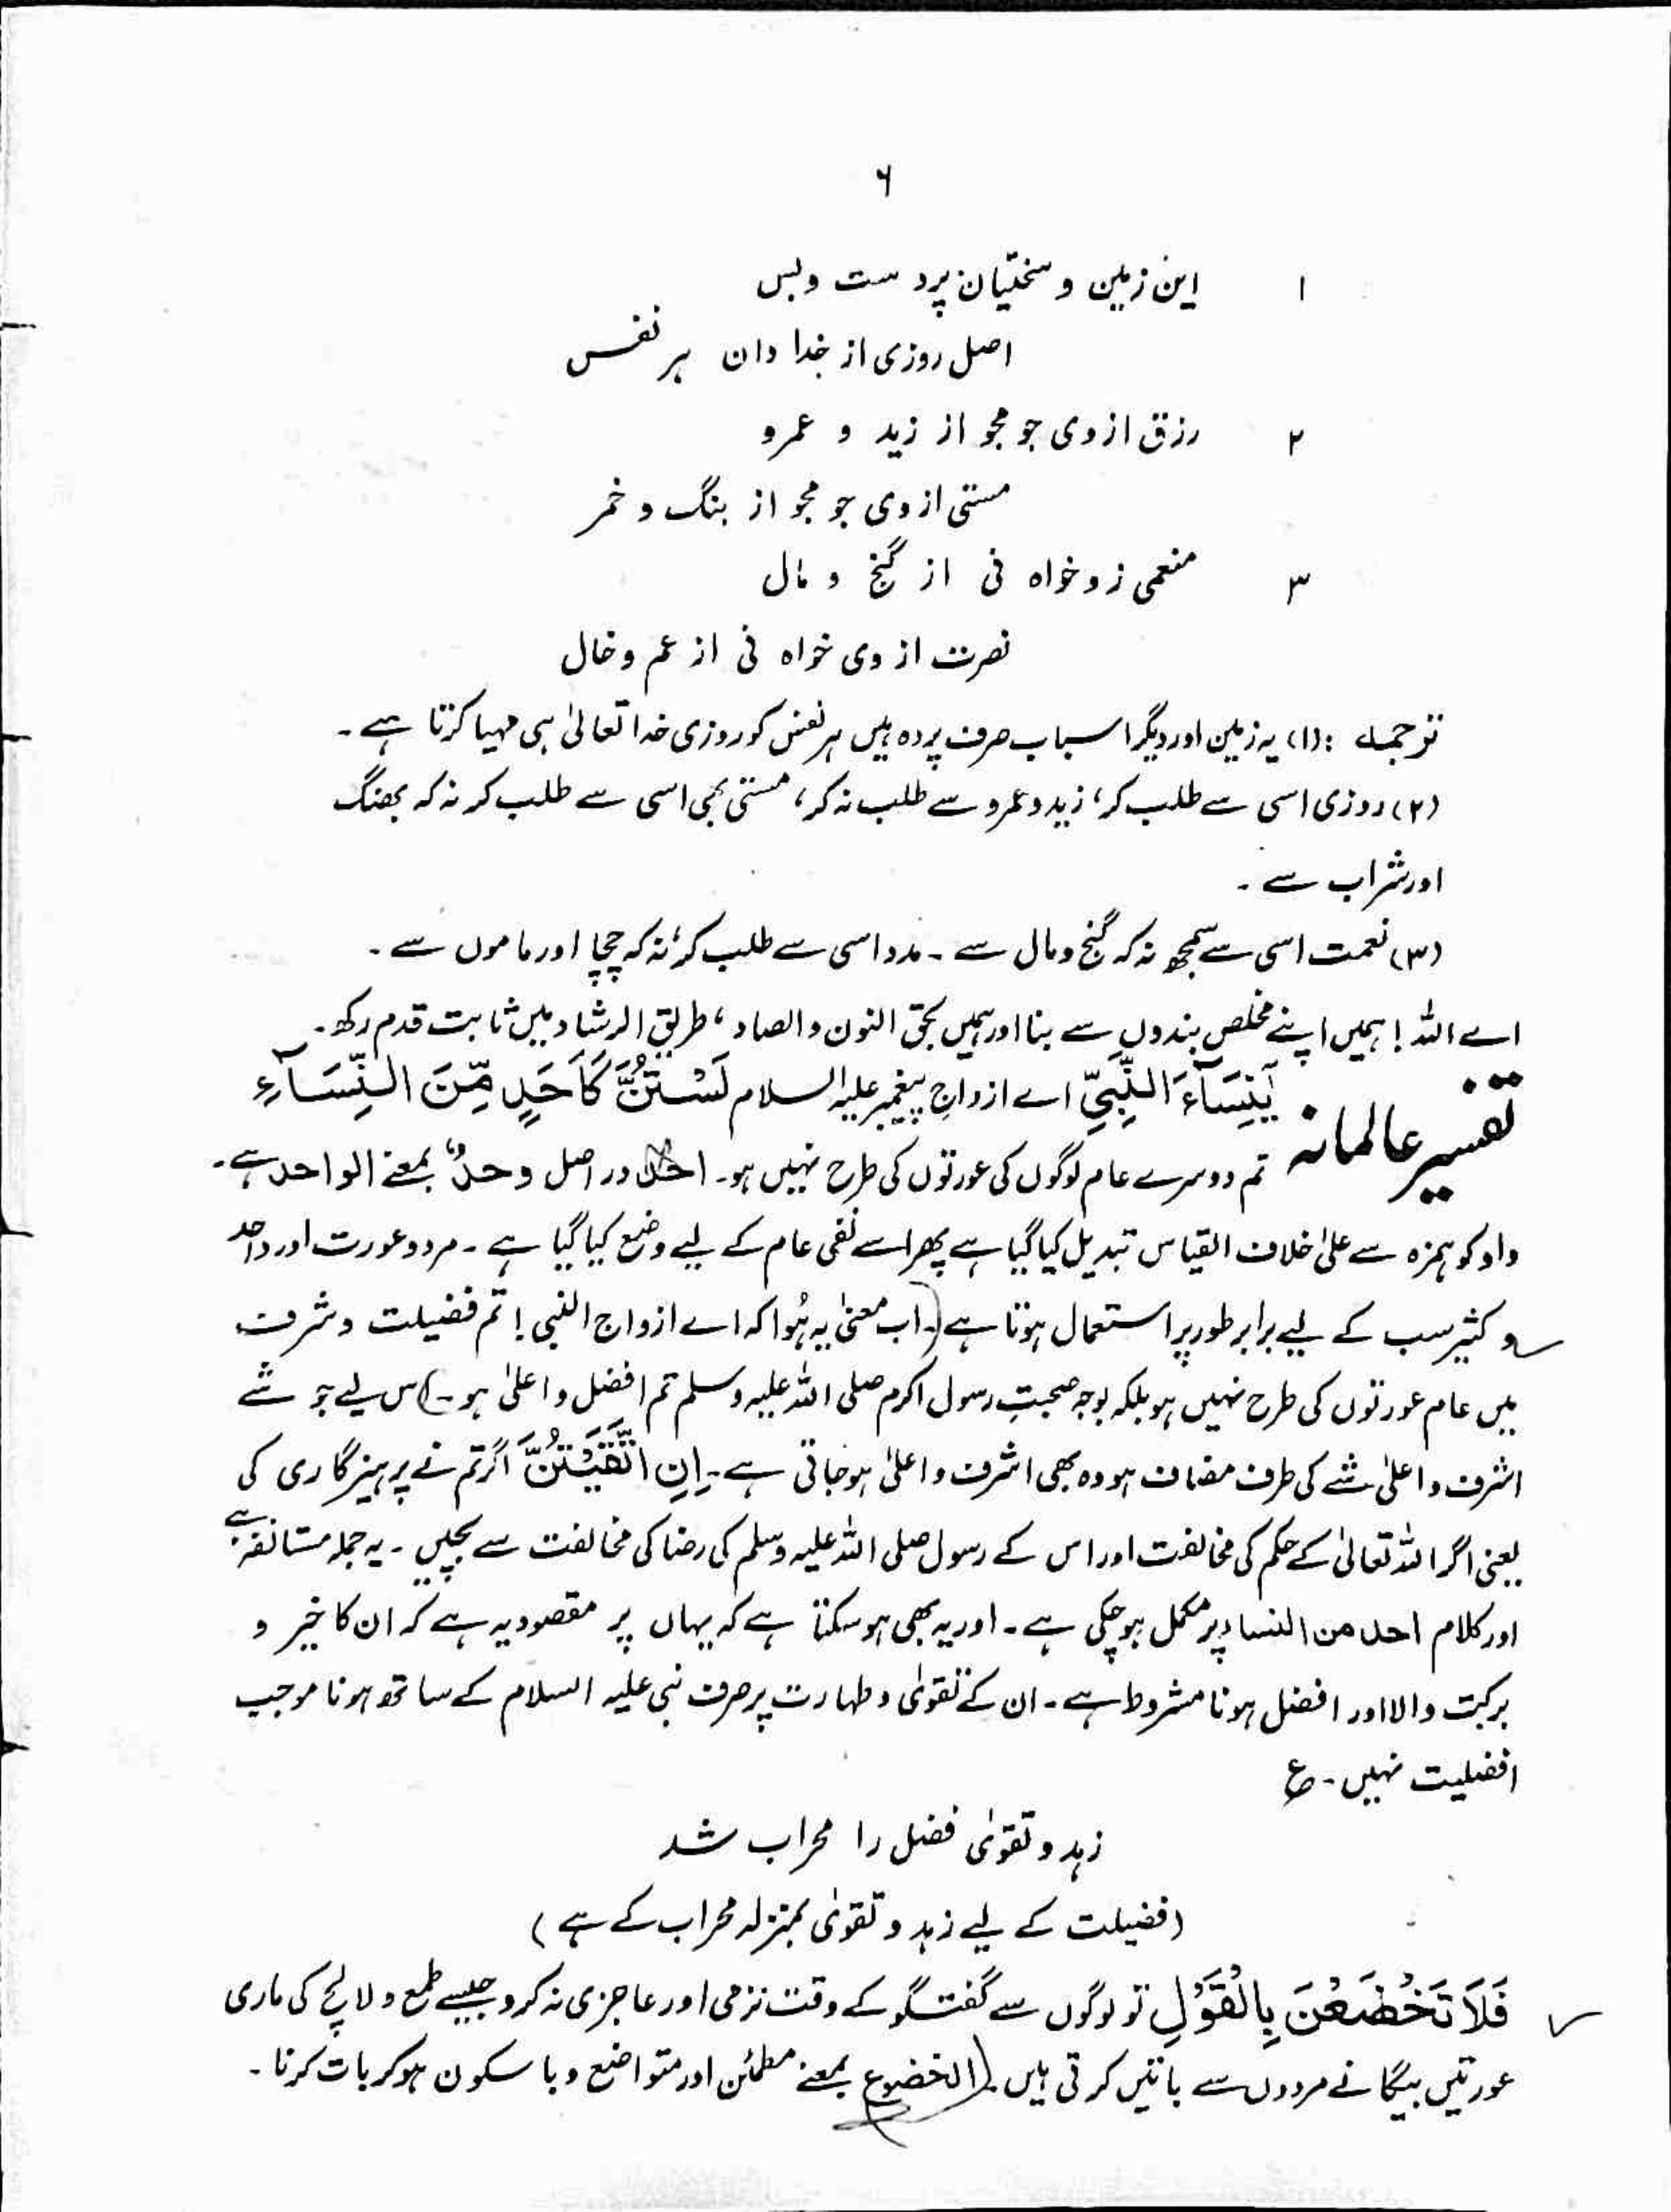 ۶
۱ این زمین و سختیان پردست و بس
اصل روزی از خدا دان ہر نفس
۲ رزق از وی جو مجو از زید و عمرو
مستی از وی جو مجو از بنگ و خمر
۳ منعمی زو خواہ نی از گنج و مال
نصرت از وی خواہ نی از عم و خال
ترجمہ : (۱) یہ زمین اور دیگر اسباب صرف پردہ ہیں ہر نفس کو روزی خدا تعالیٰ ہی مہیا کرتا ہے۔
(۲) روزی اسی سے طلب کر، زید و عمرو سے طلب نہ کر، مستی بھی اسی سے طلب کر نہ کہ بھنگ
اور شراب سے۔
(۳) نعمت اسی سے سمجھ نہ کہ گنج و مال سے۔ مدد اسی سے طلب کر، نہ کہ چچا اور ماموں سے۔
اے اللہ! ہمیں اپنے مخلص بندوں سے بنا اور ہمیں بحق النون والصاد، طریق الرشاد میں ثابت قدم رکھ۔
تفسیر عالمانہ یٰنِسَآءَ النَّبِیِّ اے ازواجِ پیغمبر علیہ السلام لَسْتُنَّ کَاَحَدٍ مِّنَ النِّسَآءِ
تم دوسرے عام لوگوں کی عورتوں کی طرح نہیں ہو۔ احد در اصل وحد، بمعنے الواحد ہے۔
واو کو ہمزہ سے علیٰ خلاف القیاس تبدیل کیا گیا ہے پھر اسے نفی عام کے لیے وضع کیا گیا ہے۔ مرد و عورت اور واحد
و کثیر سب کے لیے برابر طور پر استعمال ہوتا ہے (۔ اب معنیٰ یہ ہُوا کہ اے ازواج النبی! تم فضیلت و شرف
میں عام عورتوں کی طرح نہیں ہو بلکہ بوجہ صحبتِ رسول اکرم صلی اللہ علیہ وسلم تم افضل و اعلیٰ ہو۔) اس لیے جو شے
اشرف و اعلیٰ شے کی طرف مضاف ہو وہ بھی اشرف و اعلیٰ ہو جاتی ہے۔ اِنِ اتَّقَیْتُنَّ اگر تم نے پرہیزگاری کی
یعنی اگر اللہ تعالیٰ کے حکم کی مخالفت اور اس کے رسول صلی اللہ علیہ وسلم کی رضا کی مخالفت سے بچیں۔ یہ جملہ مستانفہ ہے
اور کلام احد من النساء پر مکمل ہو چکی ہے۔ اور یہ بھی ہو سکتا ہے کہ یہاں پر مقصود یہ ہے کہ ان کا خیر و
برکت والا اور افضل ہونا مشروط ہے۔ ان کے تقویٰ و طہارت پر صرف نبی علیہ السلام کے ساتھ ہونا موجب
افضلیت نہیں۔ ع
زہد و تقویٰ فضل را محراب شد
(فضیلت کے لیے زہد و تقویٰ بمنزلہ محراب کے ہے)
فَلَا تَخْضَعْنَ بِالْقَوْلِ تو لوگوں سے گفتگو کے وقت نرمی اور عاجزی نہ کرو جیسے طمع و لالچ کی ماری
عورتیں بیگانے مردوں سے باتیں کرتی ہیں۔ (الخضوع بمعنے مطمئن اور متواضع و با سکون ہو کر بات کرنا۔